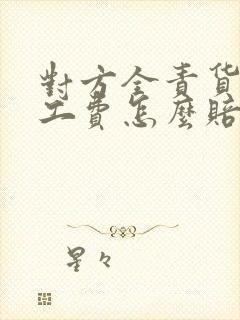 對方全責貨
工費怎麼賠
星々